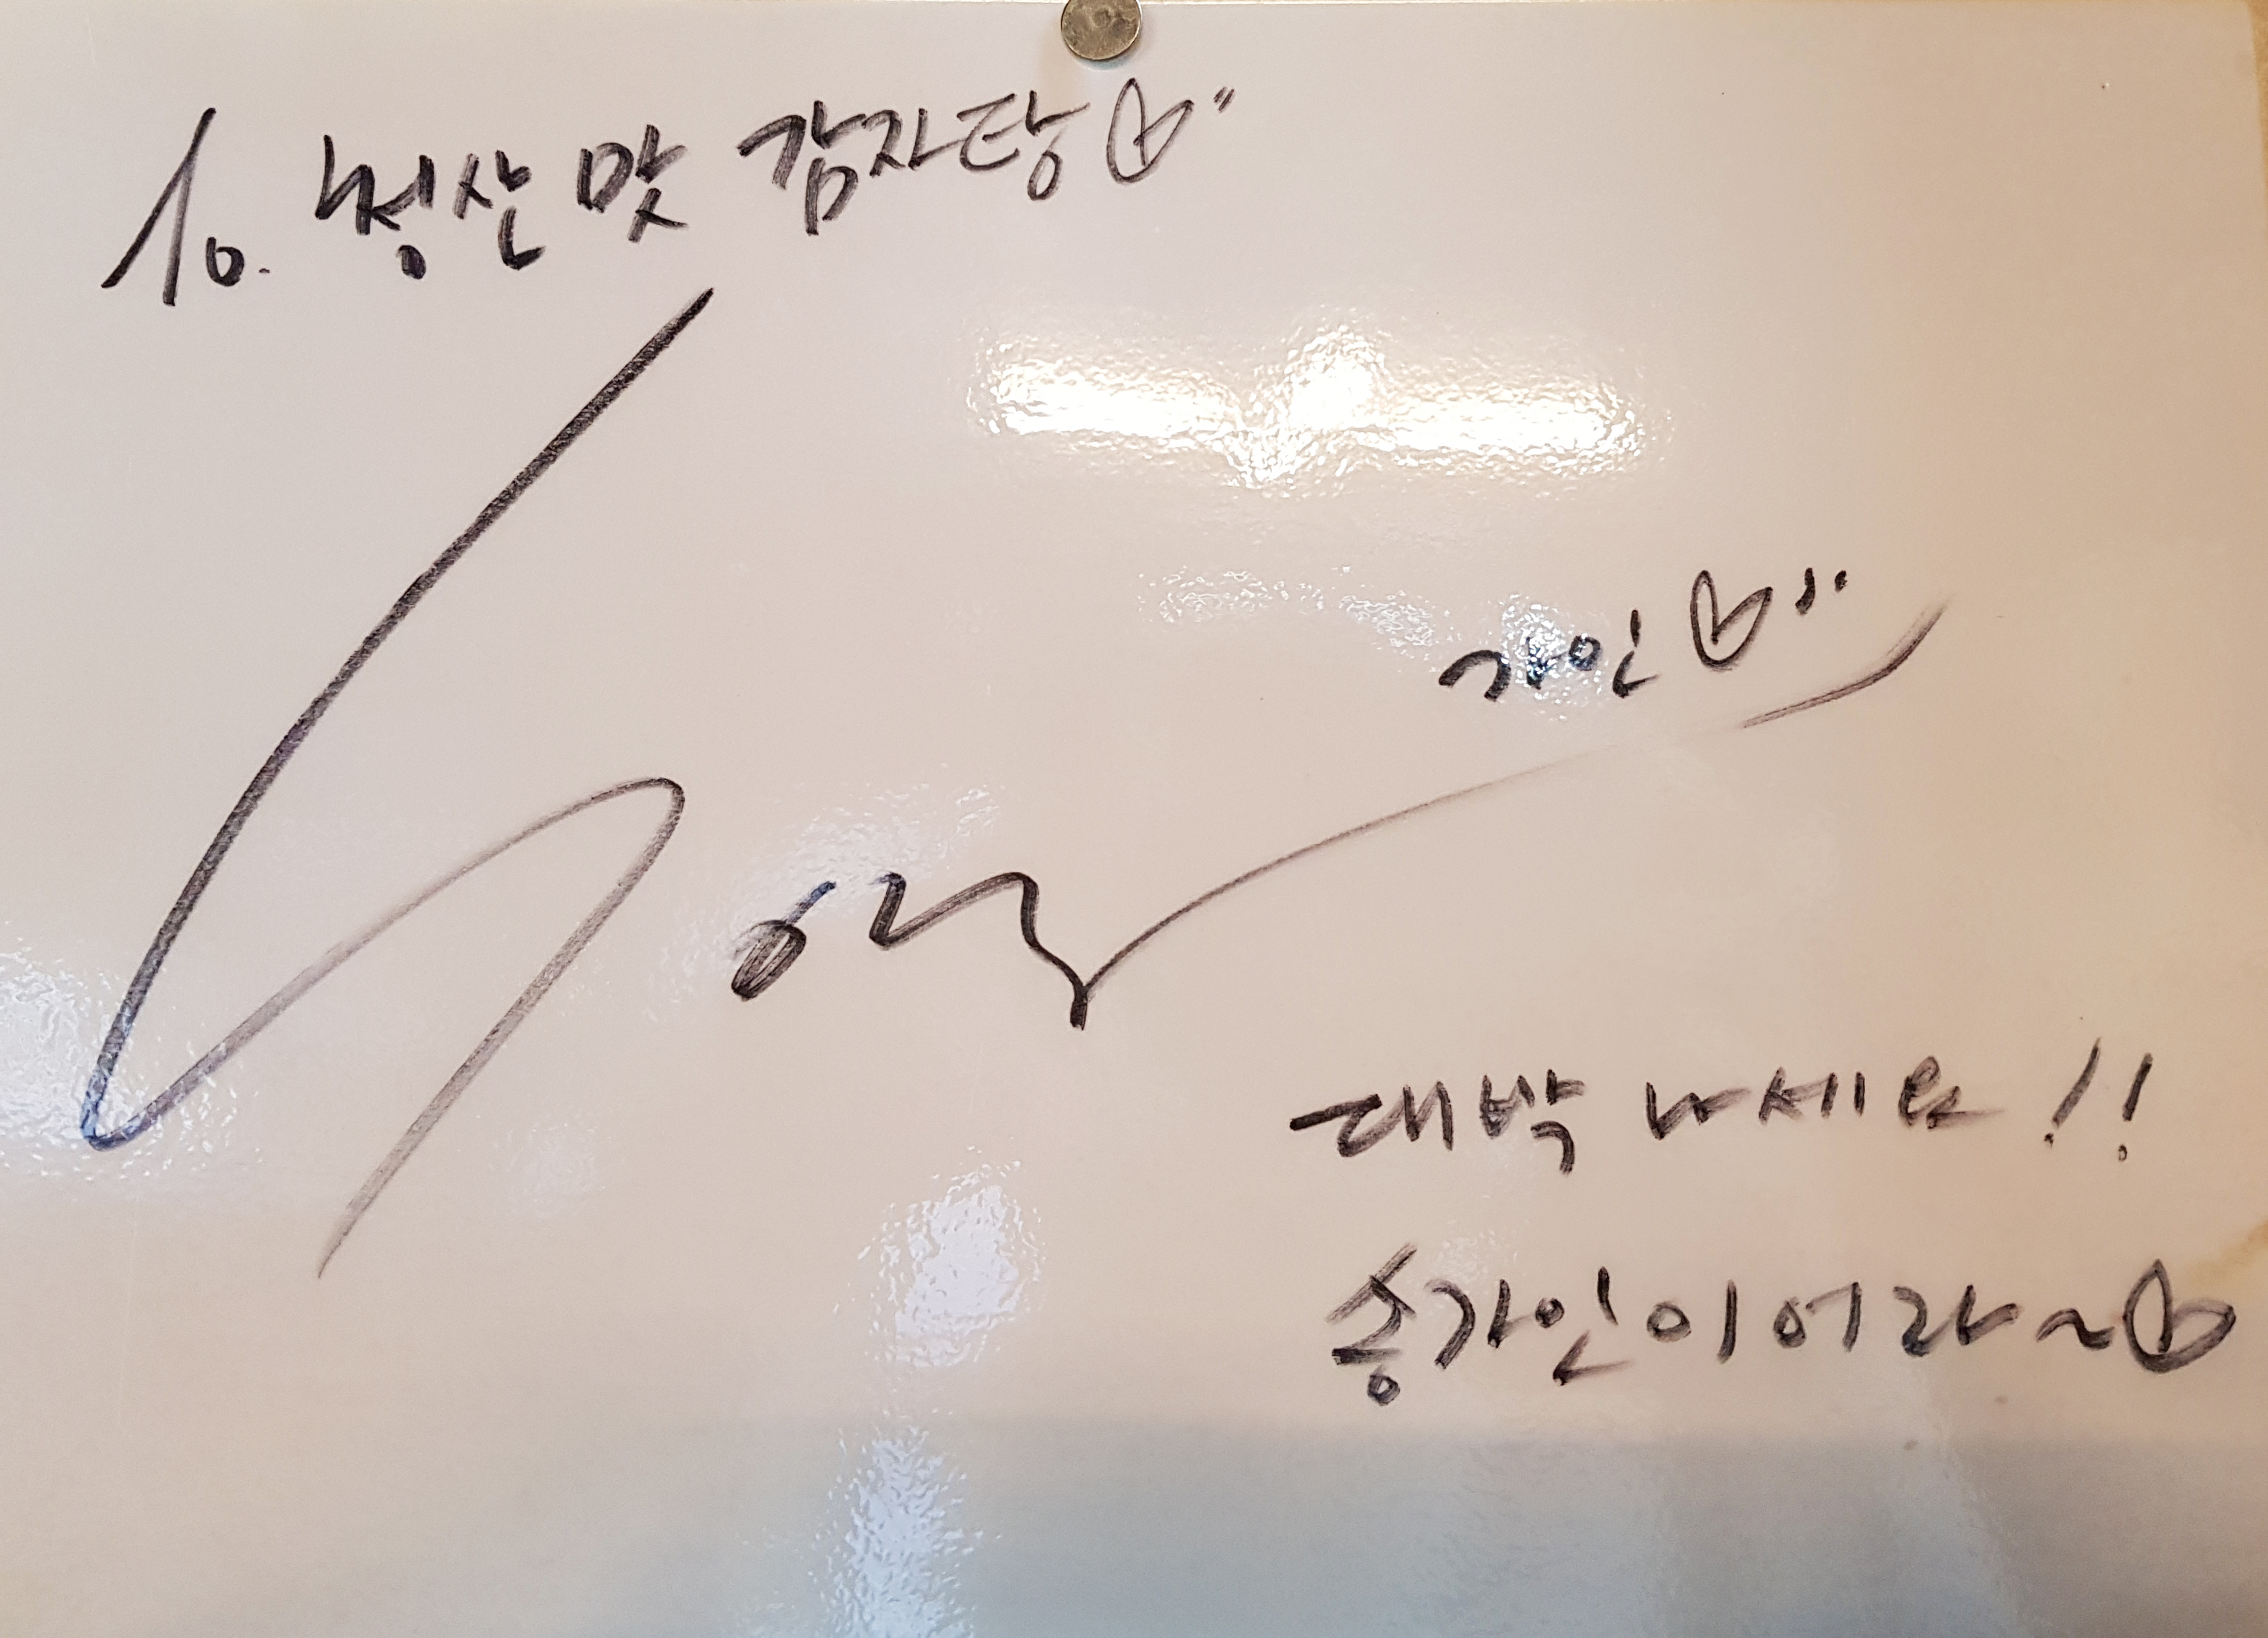 To. 청산 맛 감자탕♡〃
가인♡〃
대박 나세요!!
송가인이어라~♡